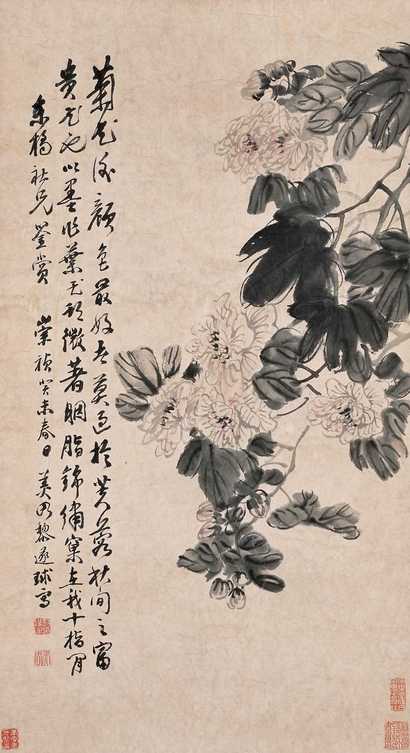 菊花後顏色最好者莫過於芙蓉秋間之富
貴花也以墨作葉花頭微著胭脂錦繡窠在我十指間
東橋社兄鑒賞　崇禎癸未春日　美周黎遂球寫